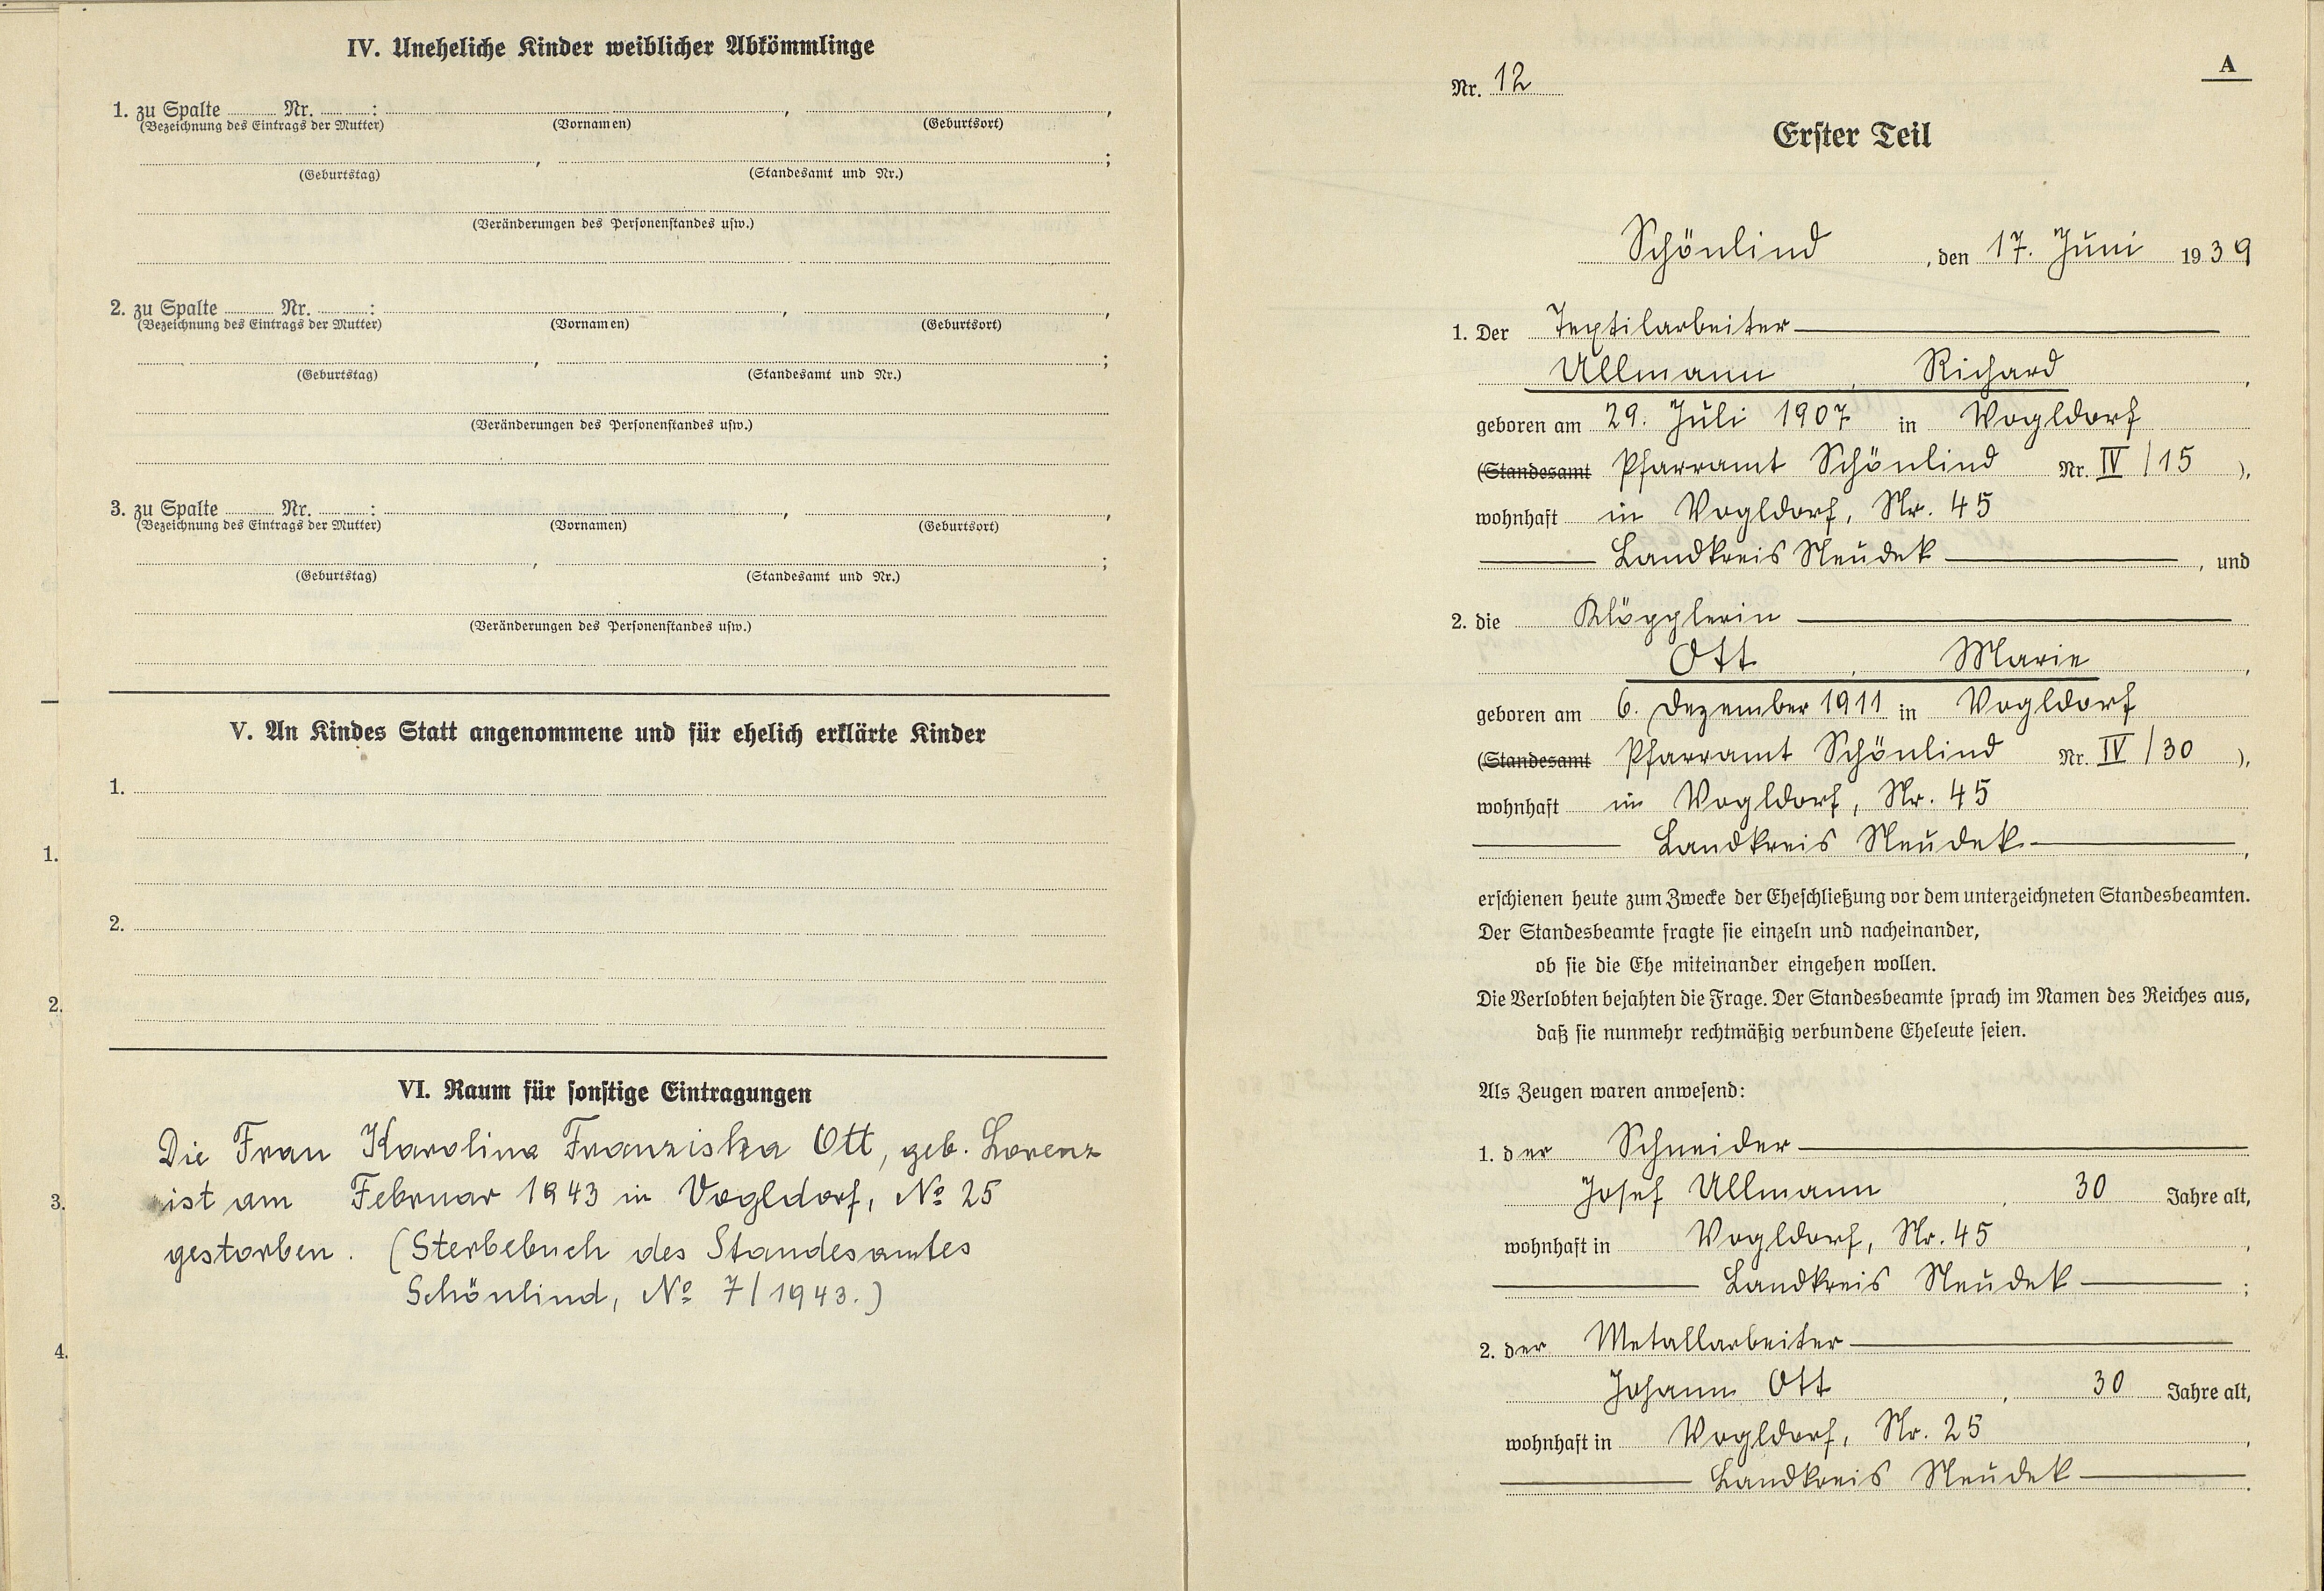 IV. Uneheliche Kinder weiblicher Abkömmlinge
1. zu Spalte ........ Nr. ........: ........, ........,
(Bezeichnung des Eintrags der Mutter) (Vornamen) (Geburtsort)
........, ........;
(Geburtstag) (Standesamt und Nr.)
(Veränderungen des Personenstandes usw.)
2. zu Spalte ........ Nr. ........: ........, ........,
(Bezeichnung des Eintrags der Mutter) (Vornamen) (Geburtsort)
........, ........;
(Geburtstag) (Standesamt und Nr.)
(Veränderungen des Personenstandes usw.)
3. zu Spalte ........ Nr. ........: ........, ........,
(Bezeichnung des Eintrags der Mutter) (Vornamen) (Geburtsort)
........, ........;
(Geburtstag) (Standesamt und Nr.)
(Veränderungen des Personenstandes usw.)
V. An Kindes Statt angenommene und für ehelich erklärte Kinder
1.
2.
VI. Raum für sonstige Eintragungen
Die Frau Karolina Franziska Ott, geb. Lorenz
ist am Februar 1943 in Vogldorf, No 25
gestorben. (Sterbebuch des Standesamtes
Schönlind, No 7/1943.)
1.
2.
3.
4.
A
Nr. 12
Erster Teil
Schönlind, den 17. Juni 1939
1. Der Textilarbeiter
Ullmann, Richard,
geboren am 29. Juli 1907 in Vogldorf
(Standesamt Pfarramt Schönlind Nr. IV/15),
wohnhaft in Vogldorf, Nr. 45
Landkreis Neudek, und
2. die Klöpplerin
Ott, Marie,
geboren am 6. Dezember 1911 in Vogldorf
(Standesamt Pfarramt Schönlind Nr. IV/30),
wohnhaft in Vogldorf, Nr. 45
Landkreis Neudek,
erschienen heute zum Zwecke der Eheschließung vor dem unterzeichneten Standesbeamten.
Der Standesbeamte fragte sie einzeln und nacheinander,
ob sie die Ehe miteinander eingehen wollen.
Die Verlobten bejahten die Frage. Der Standesbeamte sprach im Namen des Reiches aus,
daß sie nunmehr rechtmäßig verbundene Eheleute seien.
Als Zeugen waren anwesend:
1. der Schneider
Josef Ullmann, 30 Jahre alt,
wohnhaft in Vogldorf, Nr. 45,
Landkreis Neudek;
2. der Metallarbeiter
Johann Ott, 30 Jahre alt,
wohnhaft in Vogldorf, Nr. 25,
Landkreis Neudek.